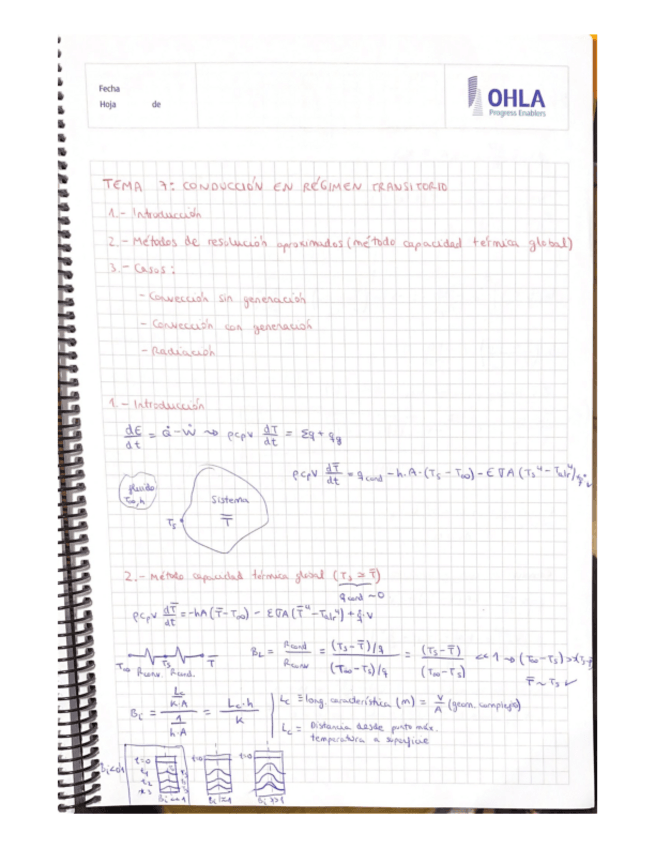 Fecha
Hoja de
OHLA
Progress Enablers
TEMA 7: CONDUCCIÓN EN RÉGIMEN TRANSITORIO
1.- Introducción
2.- Métodos de resolución aproximados (método capacidad térmica global)
3.- Casos:
- Convección sin generación
- Convección con generación
- Radiación
1.- Introducción
dE/dt = Q̇ - Ẇ ⇝ ρcpV dT/dt = Σq + qg
ρcpV dT̄/dt = qcond - h·A·(Ts - T∞) - εσA(Ts⁴ - Talr⁴)
fluido
T∞,h
Sistema
T̄
Ts
2.- Método capacidad térmica global (Ts ≃ T̄)
qcond ~0
ρcpV dT̄/dt = -hA(T̄-T∞) - εσA(T̄⁴-Talr⁴) + q̇·V
T∞ Ts T̄
Rconv. Rcond.
Bi = Rcond/Rconv = (Ts-T̄)/q / (T∞-Ts)/q = (Ts-T̄)/(T∞-Ts) << 1 → (T∞-Ts)>>
T̄ ~ Ts ✓
Bi = Lc/K·A / 1/h·A = Lc·h/K
Lc ≡ long. característica (m) = V/A (geom. compleja)
Lc = Distancia desde punto máx. temperatura a superficie
t=0 t=0 t=0
Bi<<1 Bi≃1 Bi>>1